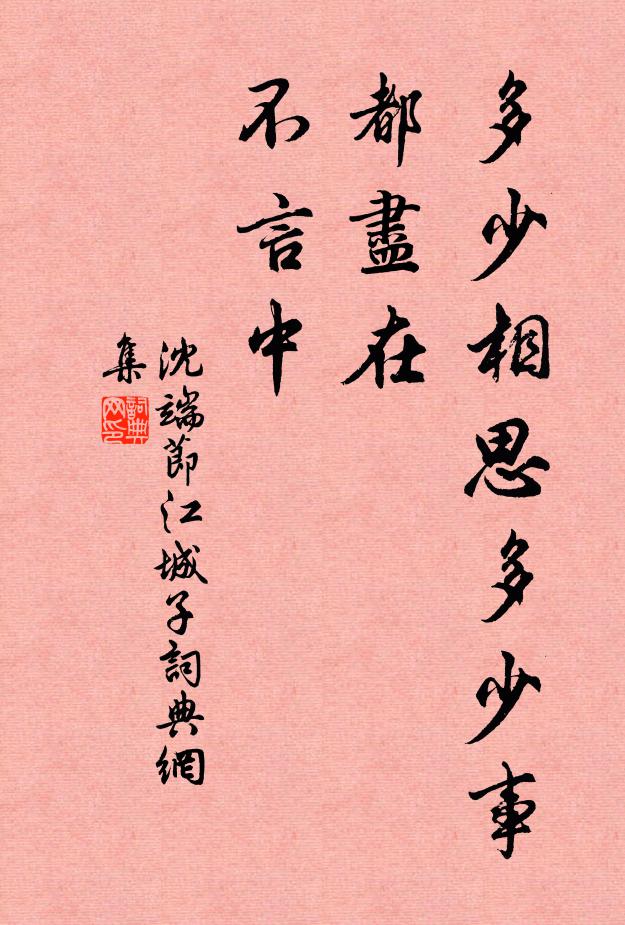 多少相思多少事
都盡在
不言中
沈端節江城子詞典網
集
詞典
网印